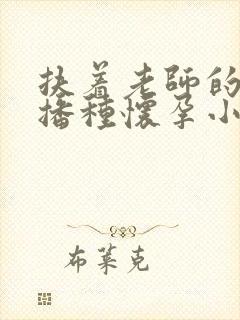 扶着老师的
播种怀孕小
布莱克